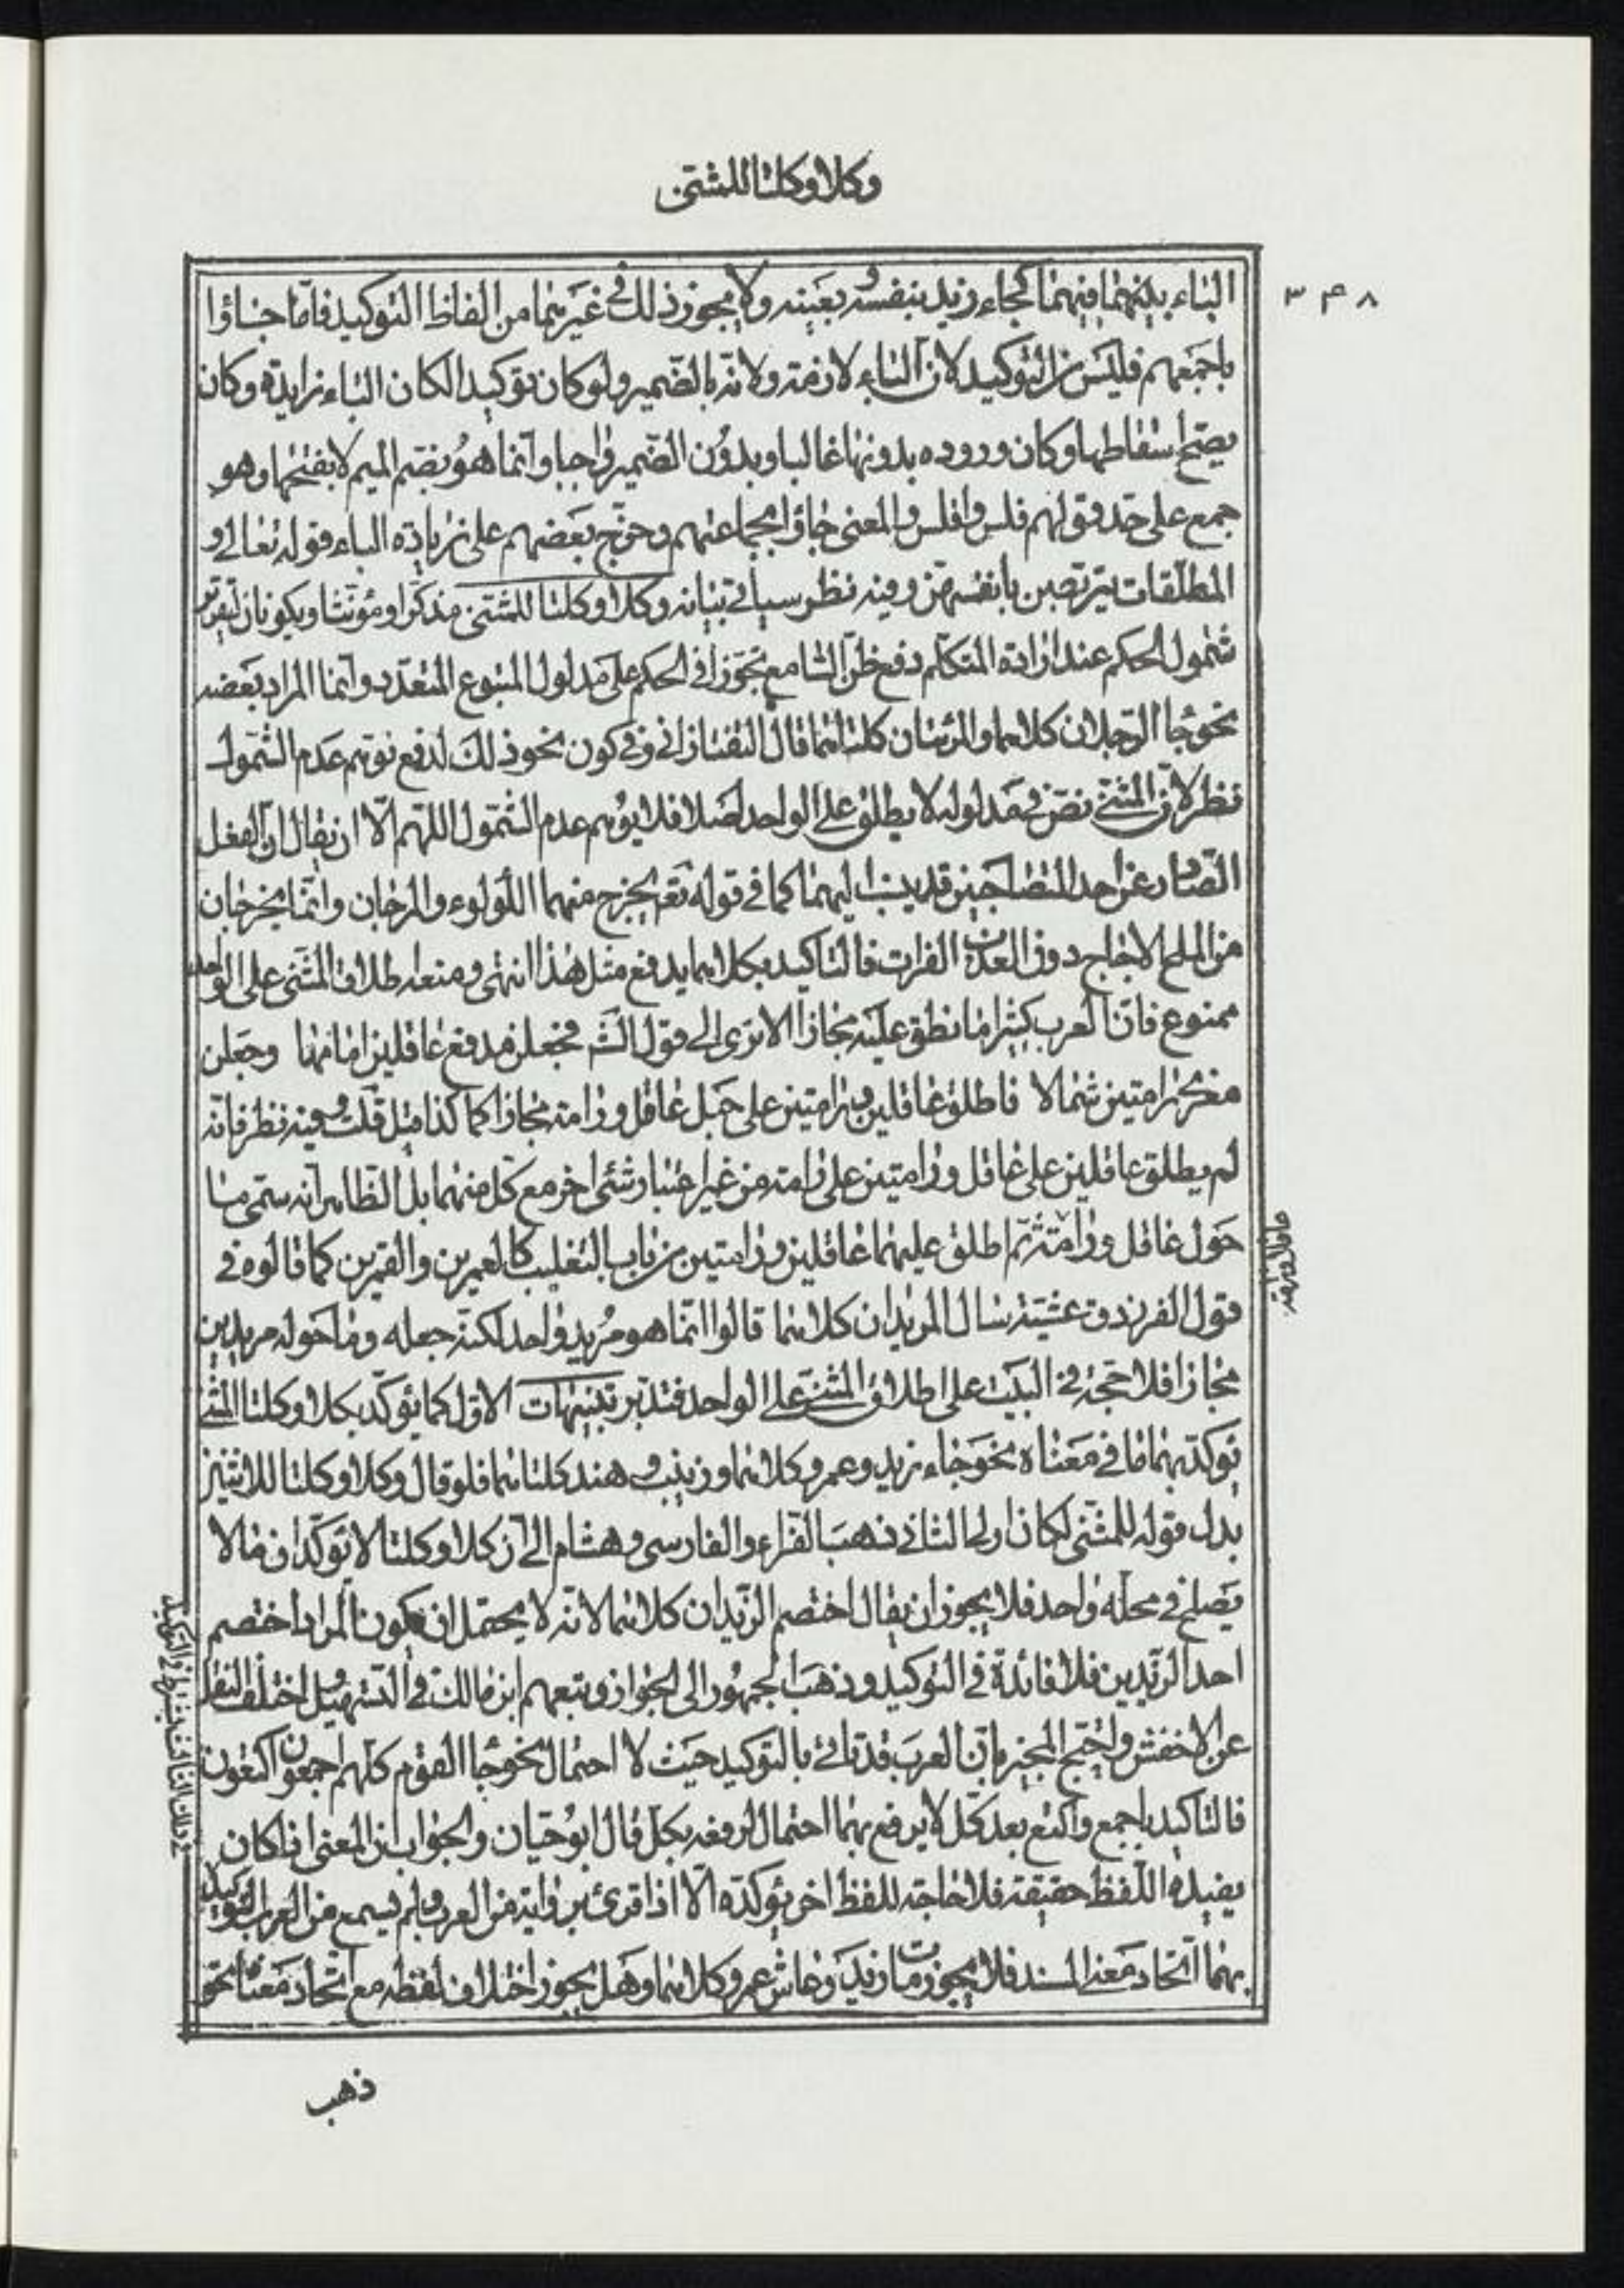 وكلا وكلتا للمثنى
٣٤٨
الباء بينهما فيهما كجاء زيد بنفسه وبعينه ولا يجوز ذلك في غيرهما من الفاظ التوكيد فامّا جاؤا
باجمعهم فليس من التوكيد لان الباء لازمة ولانه بالضمير ولو كان توكيدا لكان الباء زايدة وكان
يصحّ اسقاطها وكان وروده بدونها غالبا وبدون الضمير واجبا وانما هو بضم الميم لا بفتحها وهو
جمع على حدّ قولهم فلس وافلس والمعنى جاؤا بجماعتهم وخرّج بعضهم على زيادة الباء قوله تعالى و
المطلّقات يتربّصن بانفسهنّ وفيه نظر سياتي بيانه وكلا وكلتا للمثنى مذكرا ومؤنثا ويكونان لتقرير
شمول الحكم عند ارادة المتكلم دفع ظنّ السامع تجوّزا في الحكم على مدلول المتبوع المتعدّد وانما المراد بعضه
نحو جاء الرجلان كلاهما والمرئتان كلتاهما قال التفتازاني وفي كون نحو ذلك لدفع توهم عدم الشمول
نظر لان المثنى نصّ في مدلوله لا يطلق على الواحد اصلا فلا يوهم عدم الشمول اللهم الّا ان يقال ان الفعل
الصادر عن احد المتصاحبين قد ينسب اليهما كما في قوله تعه يخرج منهما اللؤلؤ والمرجان وانما يخرجان
من الملح الاجاج دون العذب الفرات فالتاكيد بكلاهما يدفع مثل هذا انتهى ومنعه اطلاق المثنى على الواحد
ممنوع فان العرب كثيرا ما نطق عليه مجازا الا ترى الى قول الشـ فجعلن مدفع عاقلين امامنا وجعلن
امعز رامتين شمالا فاطلق عاقلين ورامتين على جبل عاقل ورامة مجازا كما كذا قيل قلت وفيه نظر فانه
لم يطلق عاقلين على عاقل ورامتين على رامة من غير اعتبار شئ اخر مع كل منهما بل الظاهر انه سمّى ما
حول عاقل ورامة ثم اطلق عليهما عاقلين ورامتين من باب التغليب كالعمرين والقمرين كما قالوه في
قول الفرزدق عشيّة سال المربدان كلاهما قالوا انما هو مربد واحد لكنه جعله وما حوله مربدين
مجازا فلا حجة في البيت على اطلاق المثنى على الواحد فتدبر تنبيهات الاول كما يؤكّد بكلا وكلتا المثنى
يؤكّد بهما ما في معناه نحو جاء زيد وعمرو كلاهما وزينب وهند كلتاهما فلو قال وكلا وكلتا للاثنين
بدل قوله للمثنى لكان اولى الثاني ذهب الفراء والفارسى وهشام الى ان كلا وكلتا لا تؤكّدان ما لا
يصلح في محله واحد فلا يجوز ان يقال اختصم الزيدان كلاهما لانه لا يحتمل ان يكون المراد اختصم
احد الزيدين فلا فائدة في التوكيد وذهب الجمهور الى الجواز وتبعهم ابن مالك في التسهيل واختلف النقل
عن الاخفش واحتج المجيز بان العرب قد تاتي بالتوكيد حيث لا احتمال نحو جاء القوم كلهم اجمعون اكتعون
فالتاكيد باجمع واكتع بعد كل لا يرفع بهما احتمال لرفعه بكل قال ابو حيان والجواب ان المعنى اذا كان
يفيده اللفظ حقيقة فلا حاجة للفظ اخر يؤكده الّا اذا قرئ برواية من العرب ولم يسمع من العرب التوكيد
بهما اتحاد معنى المسند فلا يجوز مات زيد وعاش عمرو كلاهما وهل يجوز اختلاف لفظه مع اتحاد معناه نحو
ذهب